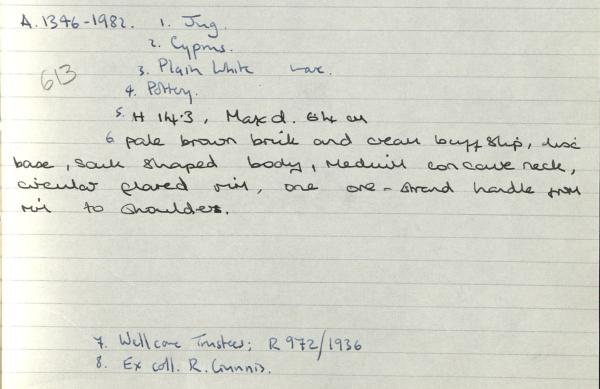 A.1346-1982. 1. Jug.
2. Cyprus.
613
3. Plain White ware.
4. Pottery.
5. H 14.3, Max d. 6.4 cm
6 pale brown brick and cream buff slip, disc
base, sack shaped body, medium concave neck,
circular flared rim, one one-strand handle from
rim to shoulder.
7. Wellcome Trustees; R 972/1936
8. Ex coll. R. Gunnis.